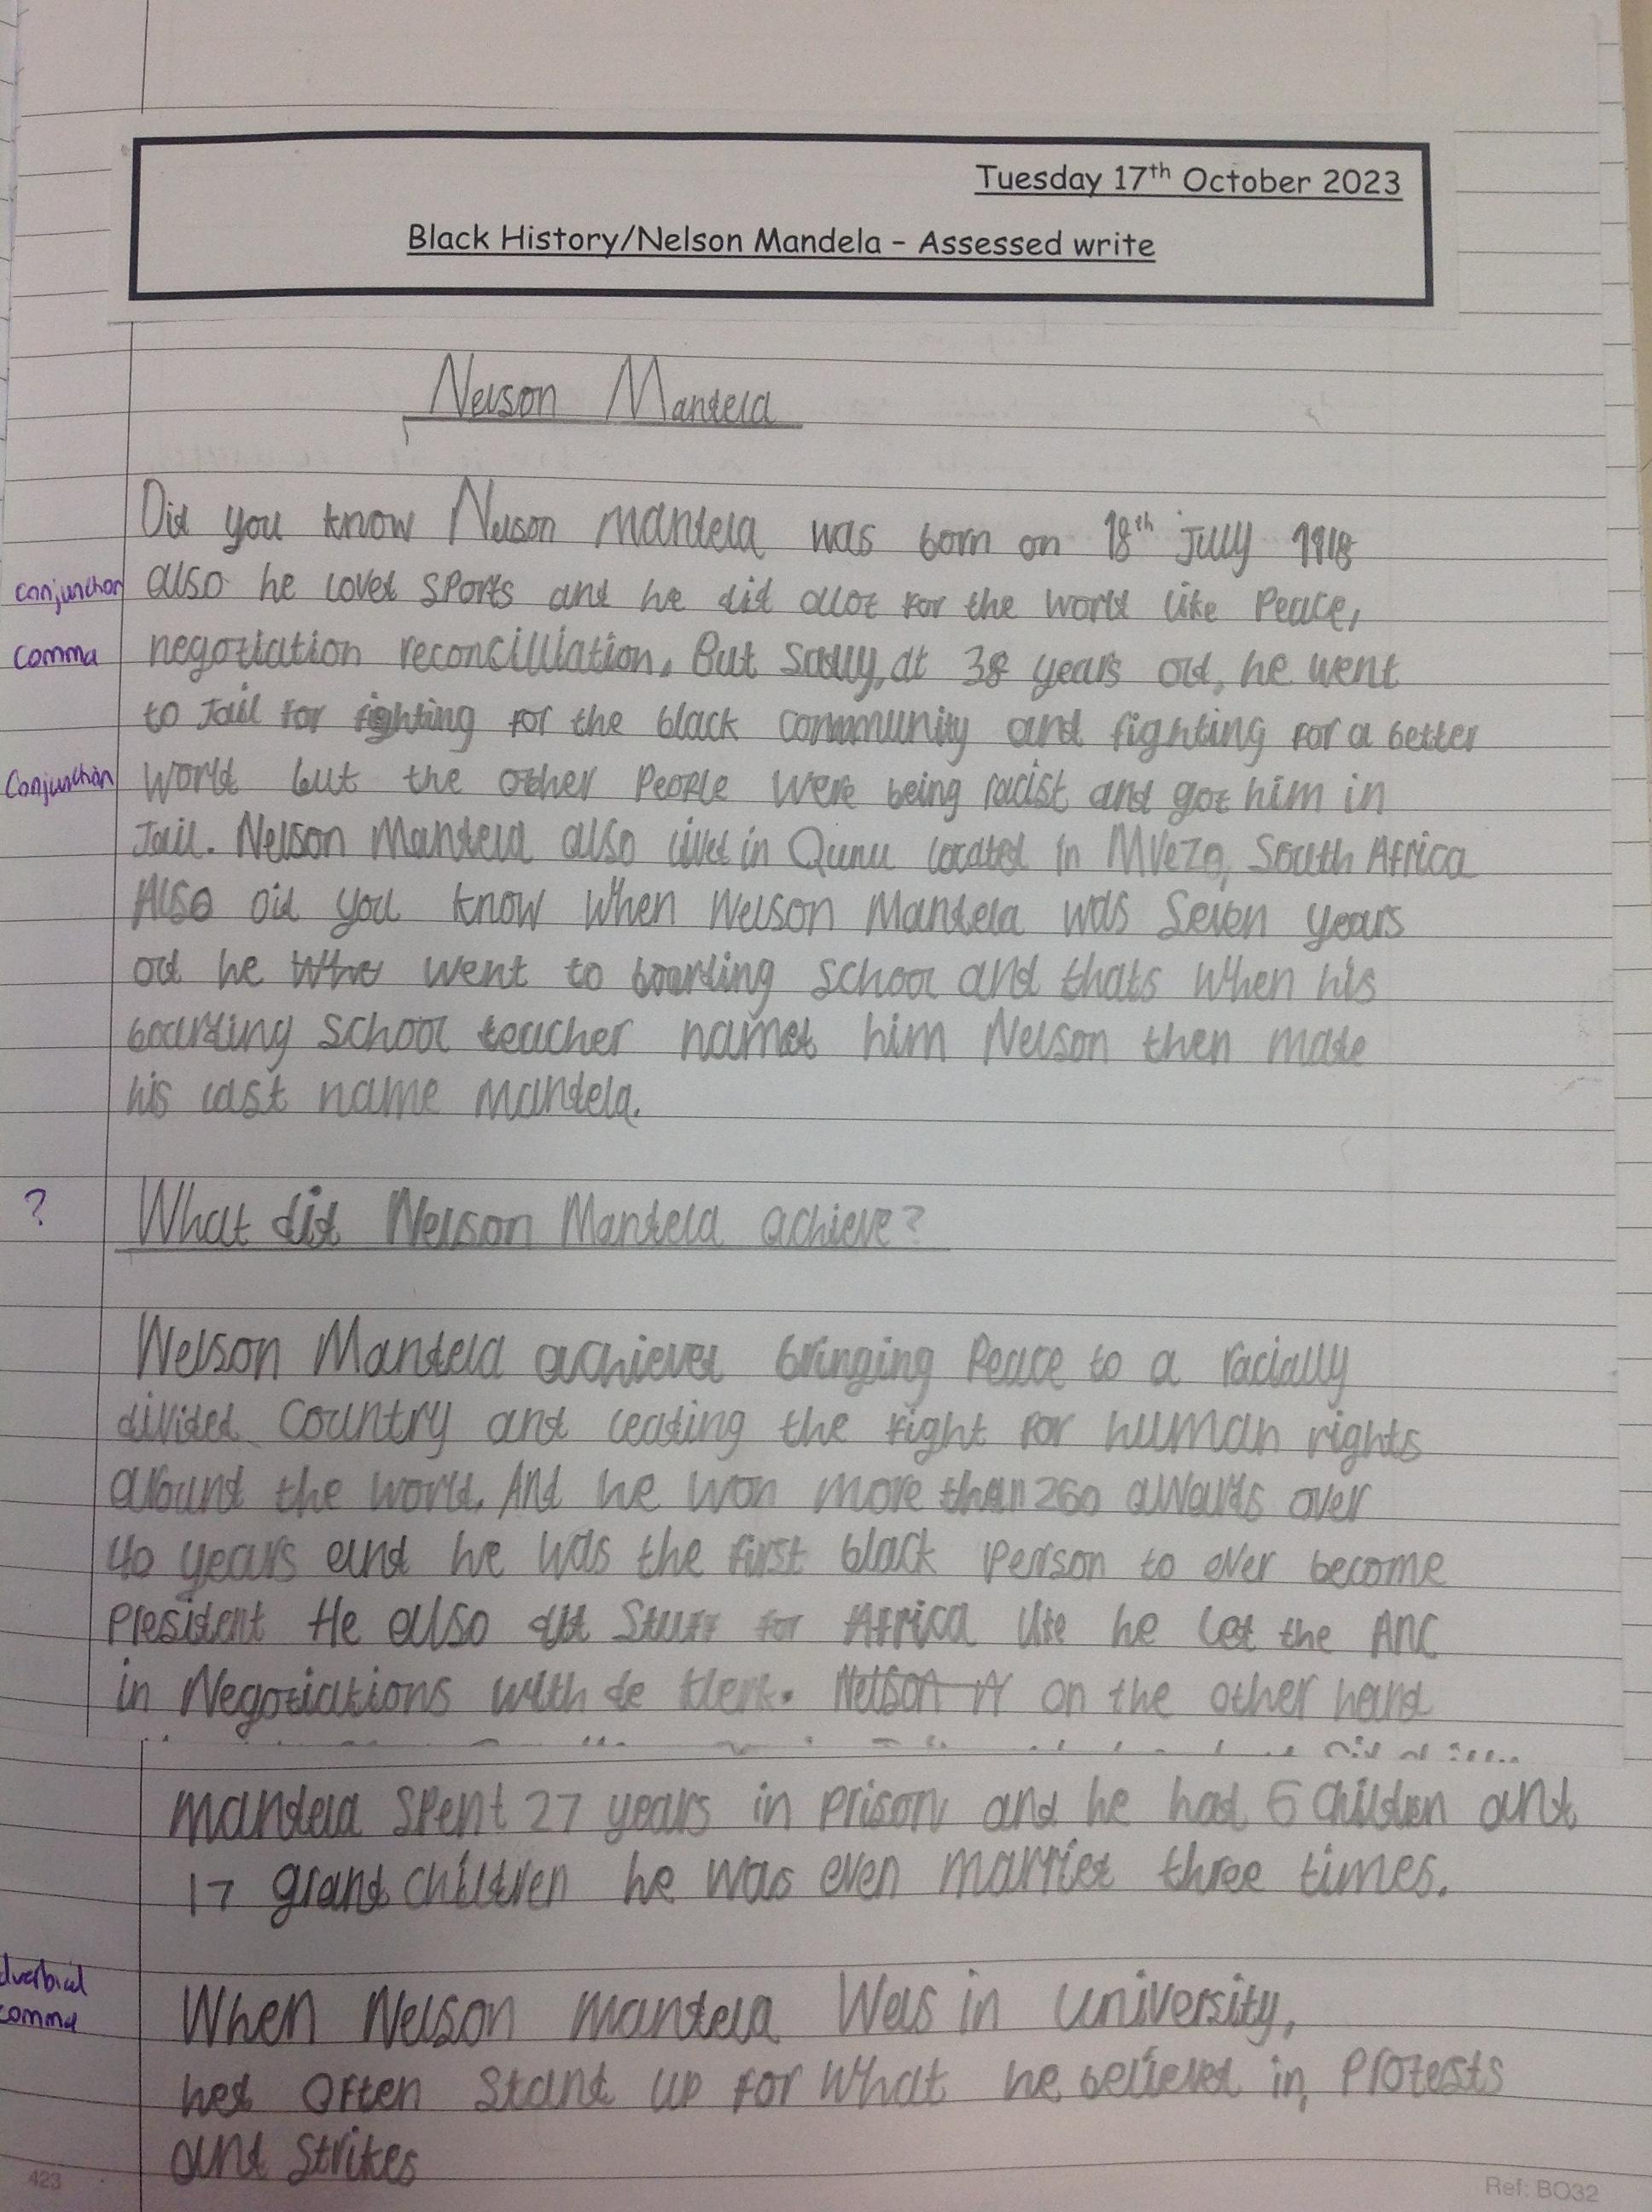 Tuesday 17th October 2023
Black History/Nelson Mandela – Assessed write
Nelson Mandela
Did you know Nelson Mandela was born on 18th July 1918
conjunction also he loved sports and he did alot for the world like Peace,
comma negotiation reconcilliation. But Sadly, at 38 years old, he went
to Jail for fighting for the black community and fighting for a better
Conjunction world but the other People were being racist and got him in
Jail. Nelson Mandela also lived in Qunu located in Mvezo, South Africa
Also Did you know when Nelson Mandela was Seven years
old he went to boarding school and thats when his
boarding school teacher named him Nelson then made
his last name Mandela.
? What did Nelson Mandela achieve?
Nelson Mandela achieved bringing Peace to a racially
divided country and leading the fight for human rights
around the world. And he won more than 260 awards over
40 years and he was the first black person to ever become
President He also did Stuff for Africa like he led the ANC
in Negotiations with de klerk. Nelson on the other hand
mandela spent 27 years in prison and he had 6 children and
17 grand children he was even married three times.
dverbial
comma When Nelson mandela Was in university,
hed often stand up for what he believed in, Protests
and strikes
423 Ref: BO32